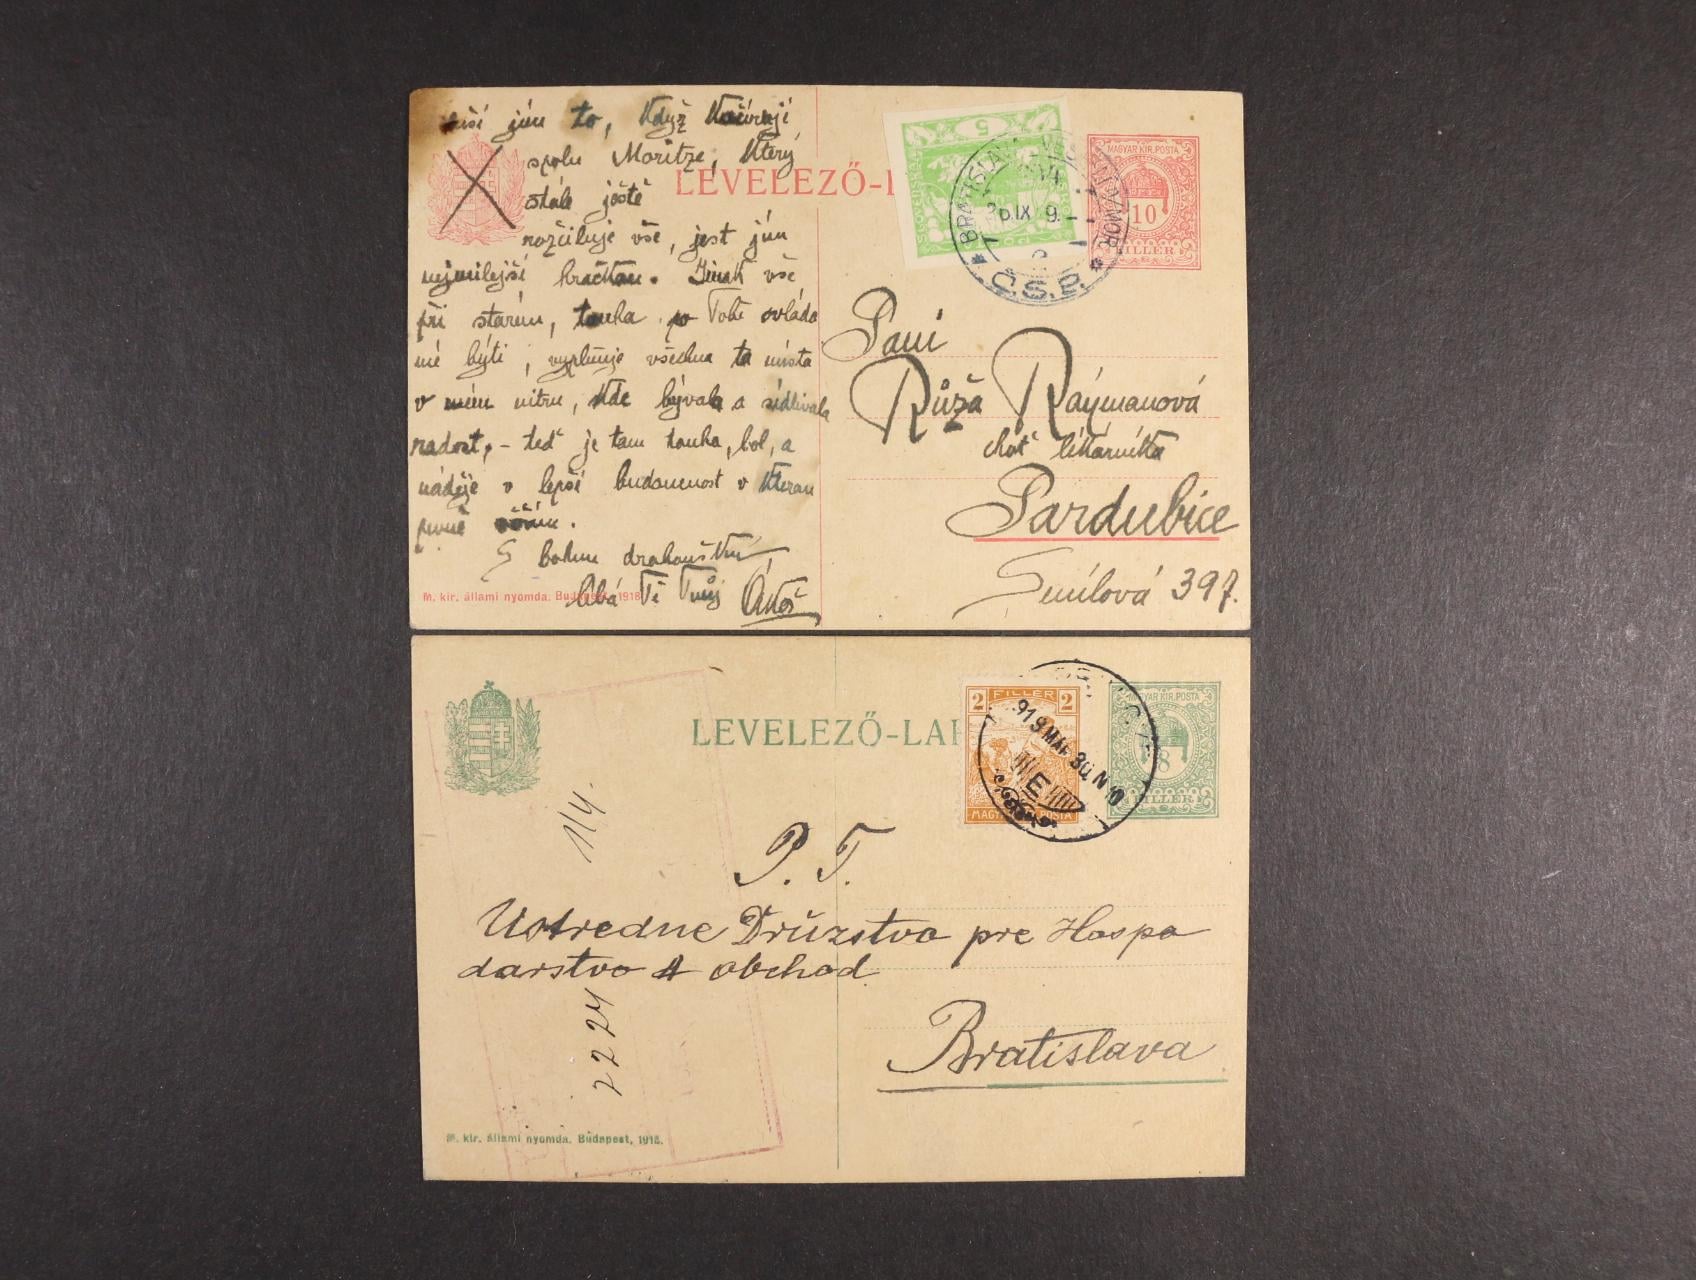 jsú to, Když
spolu Moritze, Který
stále ještě
rozčiluje vše, jest jsú
nejmilejší hračkou. Jinak vše
při starém, touha po Tobě ovládá
mé bytí, vyplňuje všechna ta místa
v mém nitru, kde bývala a sídlívala
radost, - teď je tam touha, bol, a
náděje v lepší budoucnost v kterou
pevně věřím.
S bohem
Tě Tvůj
M. kir. állami nyomda. Budapest, 1918
LEVELEZŐ-L
5
BRATISLAVA
IX 9
Č.S.P.
MAGYAR KIR. POSTA
10
FILLÉR
Paní
Růža Raýmanová
choť lékárníka
Pardubice
Smilová 397.
LEVELEZŐ-LAP
2 FILLÉR 2
MAGYAR POSTA
919 MÁR. 30. N 10
E
MAGYAR KIR. POSTA
8
FILLÉR
1/4.
P. T.
Ustredne Družstvo pre Hospo
darstvo A obchod
2224
Bratislava
M. kir. állami nyomda. Budapest, 1918.